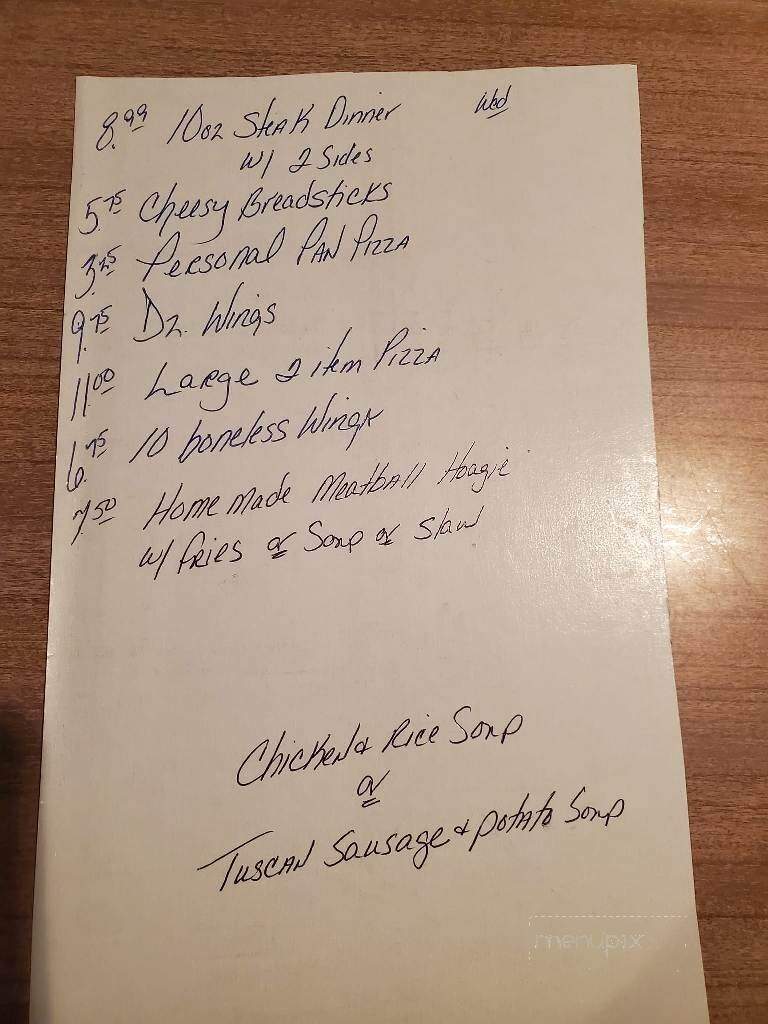 Wed
8.99 10oz Steak Dinner
w/ 2 Sides
5.75 Cheesy Breadsticks
3.25 Personal Pan Pizza
9.75 Dz. Wings
11.00 Large 2 item Pizza
6.75 10 boneless Wings
7.50 Home made Meatball Hoagie
w/ fries or Soup or Slaw
Chicken & Rice Soup
or
Tuscan Sausage & potato Soup
menupix